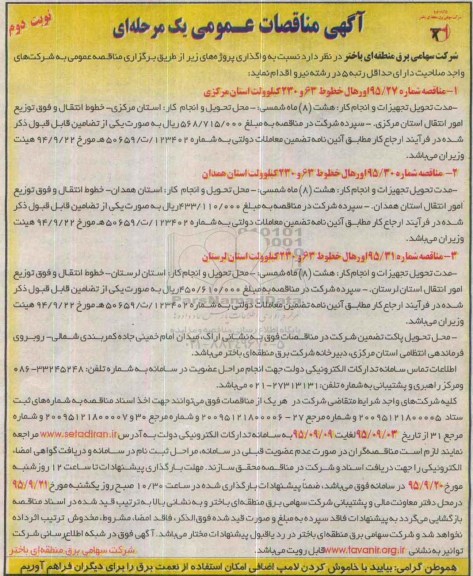 نوبت دوم
آگهی مناقصات عمومی یک مرحله‌ای
شرکت سهامی برق منطقه‌ای باختر در نظر دارد نسبت به واگذاری پروژه‌های زیر از طریق برگزاری مناقصه عمومی به شرکت‌های
واجد صلاحیت دارای حداقل رتبه ۵ در رشته نیرو اقدام نماید:
۱- مناقصه شماره ۹۵/۲۷ اورهال خطوط ۶۳ و ۲۳۰ کیلوولت استان مرکزی
-مدت تحویل تجهیزات و انجام کار: هشت (۸) ماه شمسی. – محل تحویل و انجام کار: استان مرکزی- خطوط انتقال و فوق توزیع
امور انتقال استان مرکزی. – سپرده شرکت در مناقصه به مبلغ ۵۶۸/۷۱۵/۰۰۰ ریال به صورت یکی از تضامین قابل قبول ذکر
شده در فرآیند ارجاع کار مطابق آئین نامه تضمین معاملات دولتی به شماره ۱۲۳۴۰۲/ت/۵۰۶۵۹ هـ مورخ ۹۴/۹/۲۲ هیئت
وزیران می‌باشد.
۲- مناقصه شماره ۹۵/۳۰ اورهال خطوط ۶۳ و ۲۳۰ کیلوولت استان همدان
-مدت تحویل تجهیزات و انجام کار: هشت (۸) ماه شمسی. – محل تحویل و انجام کار: استان همدان- خطوط انتقال و فوق توزیع
امور انتقال استان همدان. – سپرده شرکت در مناقصه به مبلغ ۴۳۳/۱۱۰/۰۰۰ ریال به صورت یکی از تضامین قابل قبول ذکر
شده در فرآیند ارجاع کار مطابق آئین نامه تضمین معاملات دولتی به شماره ۱۲۳۴۰۲/ت/۵۰۶۵۹ هـ مورخ ۹۴/۹/۲۲ هیئت
وزیران می‌باشد.
۳- مناقصه شماره ۹۵/۳۱ اورهال خطوط ۶۳ و ۲۳۰ کیلوولت استان لرستان
-مدت تحویل تجهیزات و انجام کار: هشت (۸) ماه شمسی. – محل تحویل و انجام کار: استان لرستان- خطوط انتقال و فوق توزیع
امور انتقال استان لرستان. – سپرده شرکت در مناقصه به مبلغ ۴۵۰/۶۱۰/۰۰۰ ریال به صورت یکی از تضامین قابل قبول ذکر
شده در فرآیند ارجاع کار مطابق آئین نامه تضمین معاملات دولتی به شماره ۱۲۳۴۰۲/ت/۵۰۶۵۹ هـ مورخ ۹۴/۹/۲۲ هیئت
وزیران می‌باشد.
- محل تحویل پاکت تضمین شرکت در مناقصات فوق به نشانی اراک، میدان امام خمینی جاده کمربندی شمالی- روبروی
فرماندهی انتظامی استان مرکزی، دبیرخانه شرکت برق منطقه‌ای باختر می‌باشد.
اطلاعات تماس سامانه تدارکات الکترونیکی دولت جهت انجام مراحل عضویت در سامانه به شماره تلفن: ۳۳۲۴۵۲۴۸-۰۸۶
ومرکز راهبری و پشتیبانی به شماره تلفن: ۲۷۳۱۳۱۳۱-۰۲۱ می‌باشد.
کلیه شرکت‌های واجد شرایط متقاضی شرکت در هر یک از مناقصات فوق می‌توانند جهت اخذ اسناد مناقصه به شماره‌های ثبت
ستاد ۲۰۰۹۵۱۲۱۸۰۰۰۰۵ و شماره مرجع ۲۷ – ۲۰۰۹۵۱۲۱۸۰۰۰۰۶ و شماره مرجع ۳۰ و ۲۰۰۹۵۱۲۱۸۰۰۰۰۷ و شماره
مرجع ۳۱ از تاریخ ۹۵/۰۹/۰۳ لغایت ۹۵/۰۹/۰۹ به سامانه تدارکات الکترونیکی دولت به آدرس www.setadiran.ir مراجعه
نمایند لازم است مناقصه‌گران در صورت عدم عضویت قبلی در سامانه، مراحل ثبت نام در سامانه و دریافت گواهی امضاء
الکترونیکی را جهت دریافت اسناد و شرکت در مناقصه محقق سازند. مهلت بارگذاری پیشنهادات تا ساعت ۱۲ روز شنبه به
مورخ ۹۵/۹/۲۰ در سامانه فوق می‌باشد، ضمناً پیشنهادات بارگذاری شده در ساعت ۱۰/۳۰ صبح روز یکشنبه مورخ ۹۵/۹/۲۱
در محل دفتر معاونت مالی و پشتیبانی شرکت سهامی برق منطقه‌ای باختر و به نشانی بالا به ترتیب قید شده در اسناد مناقصه
بازگشایی می‌گردد به پیشنهادات فاقد سپرده به مبلغ و صورت قید شده فوق الذکر، فاقد امضا، مشروط، مخدوش، ترتیب اثر داده
نخواهد شد و شرکت سهامی برق منطقه‌ای باختر در رد یا قبول پیشنهادات مختار می‌باشد. آگهی فوق در شبکه اطلاع رسانی شرکت
توانیر به نشانی www.tavanir.org.ir قابل رویت می‌باشد.
شرکت سهامی برق منطقه‌ای باختر
هموطن گرامی: بیایید با خاموش کردن لامپ اضافی امکان استفاده از نعمت برق را برای دیگران فراهم آوریم